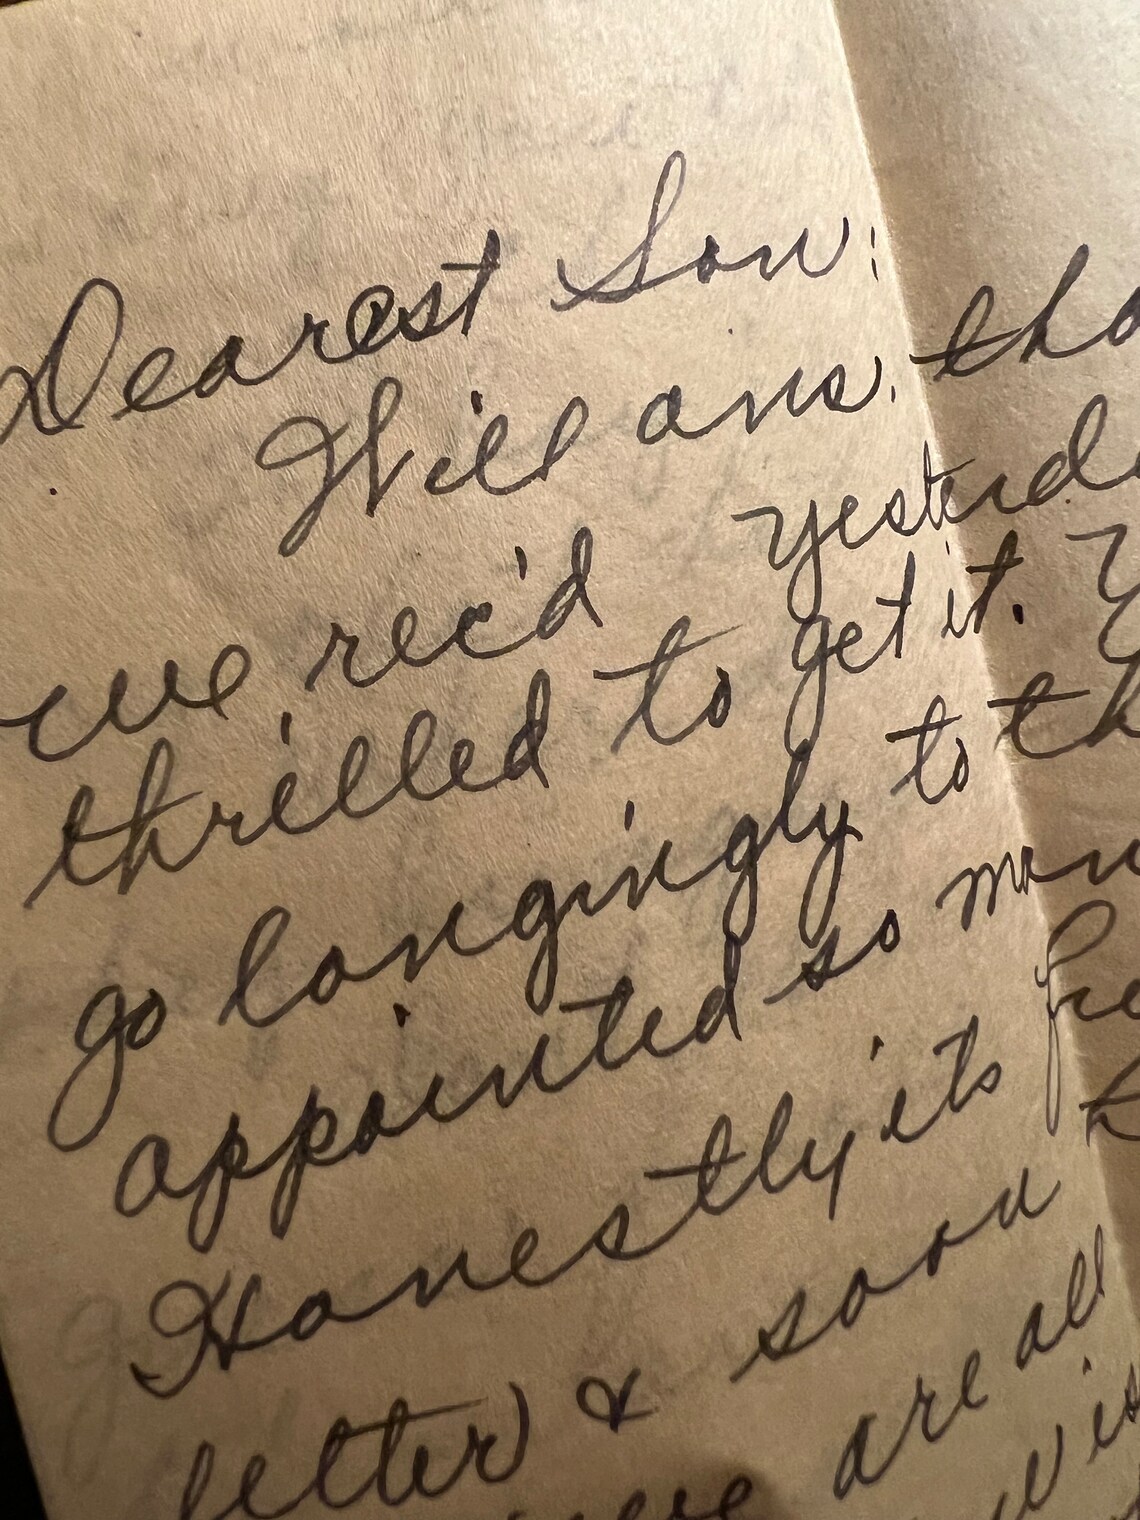 Dearest Son:
Will ans. tho
we rec'd yesterd
thrilled to get it. Y
go longingly to th
appointed so man
Honestly its fre
letter) & soon t
are all
vis